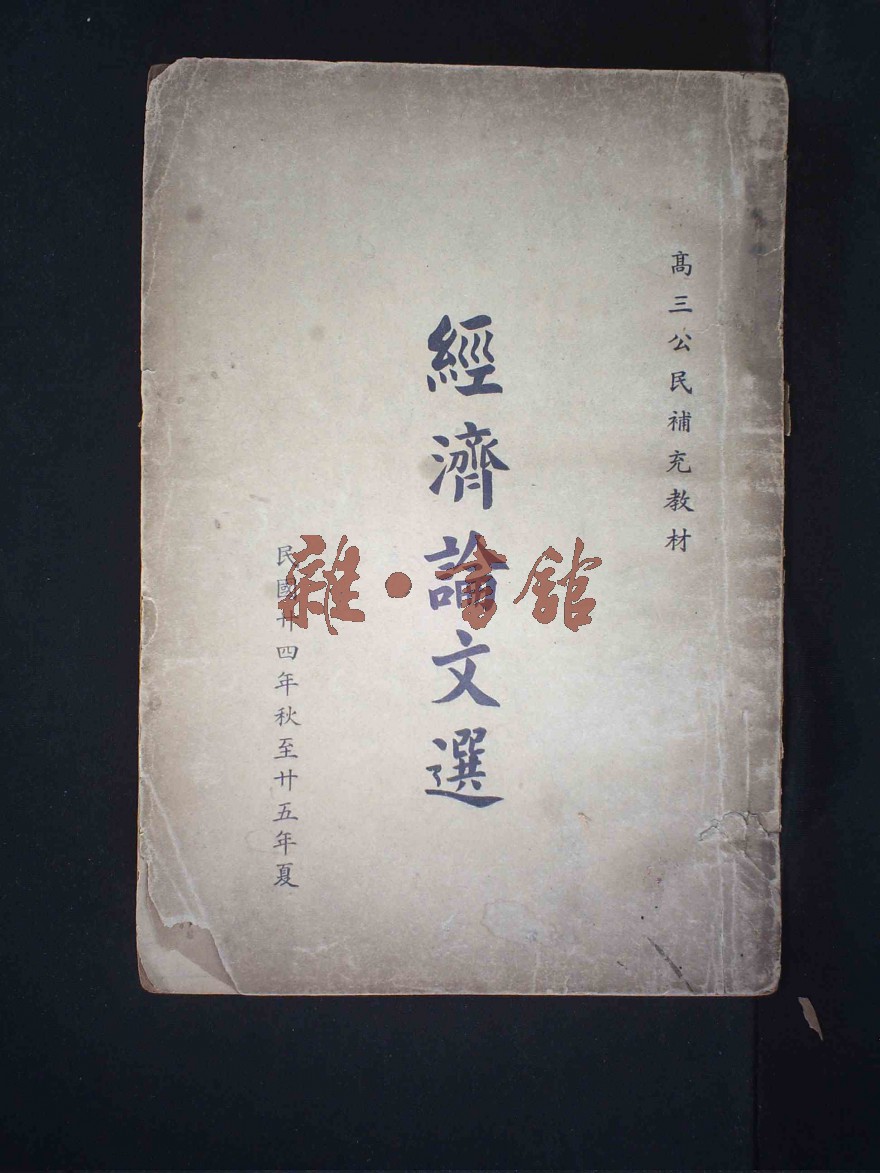 高三公民補充教材
經濟論文選
民國廿四年秋至廿五年夏
雜·書館